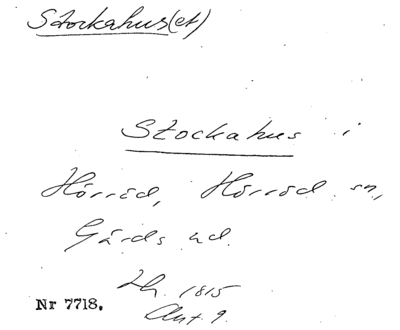 Stockahus(et)
Stockahus i
Hörröd, Hörröd sn,
Gärds hd.
Lh. 1815
Akt 9.
Nr 7718.